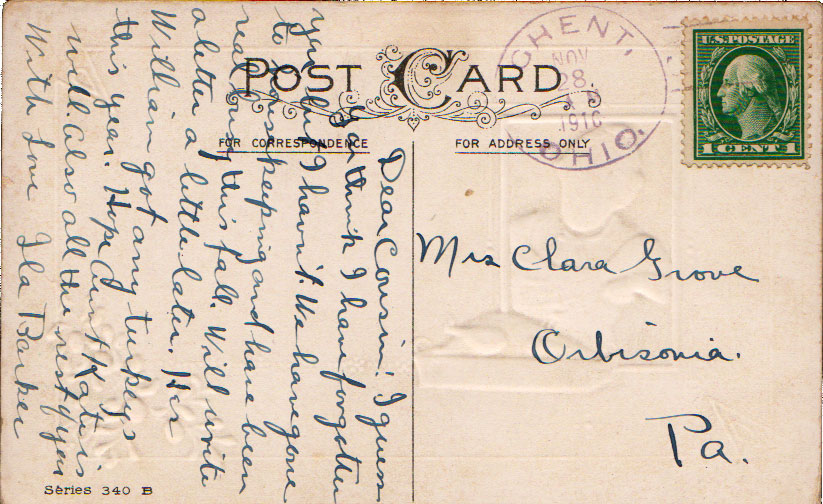 POST CARD
FOR CORRESPONDENCE
FOR ADDRESS ONLY
GHENT,
NOV
28
1916
OHIO.
U.S. POSTAGE
1 CENT 1
Dear Cousin: I guess
you think I have forgotten
you but I havn't. We have gone
to housekeeping and have been
real busy this fall. Will write
a letter a little later. Has
William got any turkeys
this year. Hope Aunt Kate is
well. Also all the rest of you
With Love Ila Barker
Mrs Clara Grove
Orbisonia.
Pa.
Series 340 B